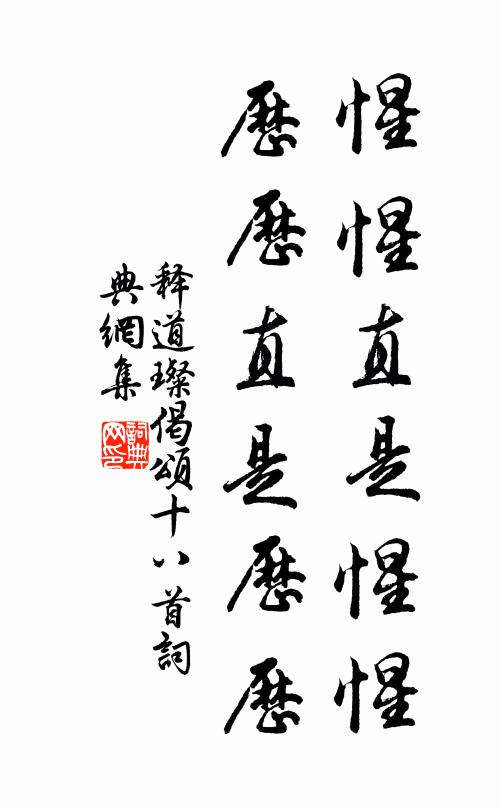 惺惺直是惺惺
歷歷直是歷歷
释道璨偈頌十八首詞
典網集
詞典
网印